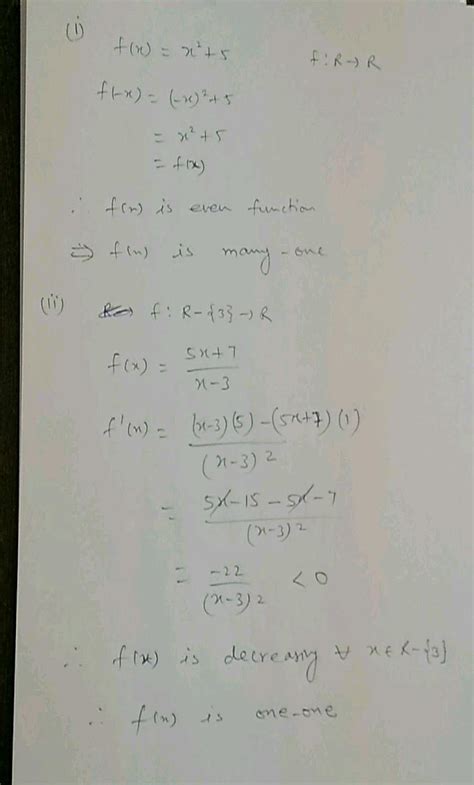 (i)
f(x) = x²+5    f : R→R
f(-x) = (-x)²+5
= x²+5
= f(x)
∴ f(x) is even function
⇒ f(x) is many-one
(ii) f : R-{3}→R
f(x) = (5x+7)/(x-3)
f'(x) = ((x-3)(5)-(5x+7)(1))/(x-3)²
= (5x-15-5x-7)/(x-3)²
= -22/(x-3)² <0
∴ f(x) is decreasing ∀ x∈R-{3}
∴ f(x) is one-one